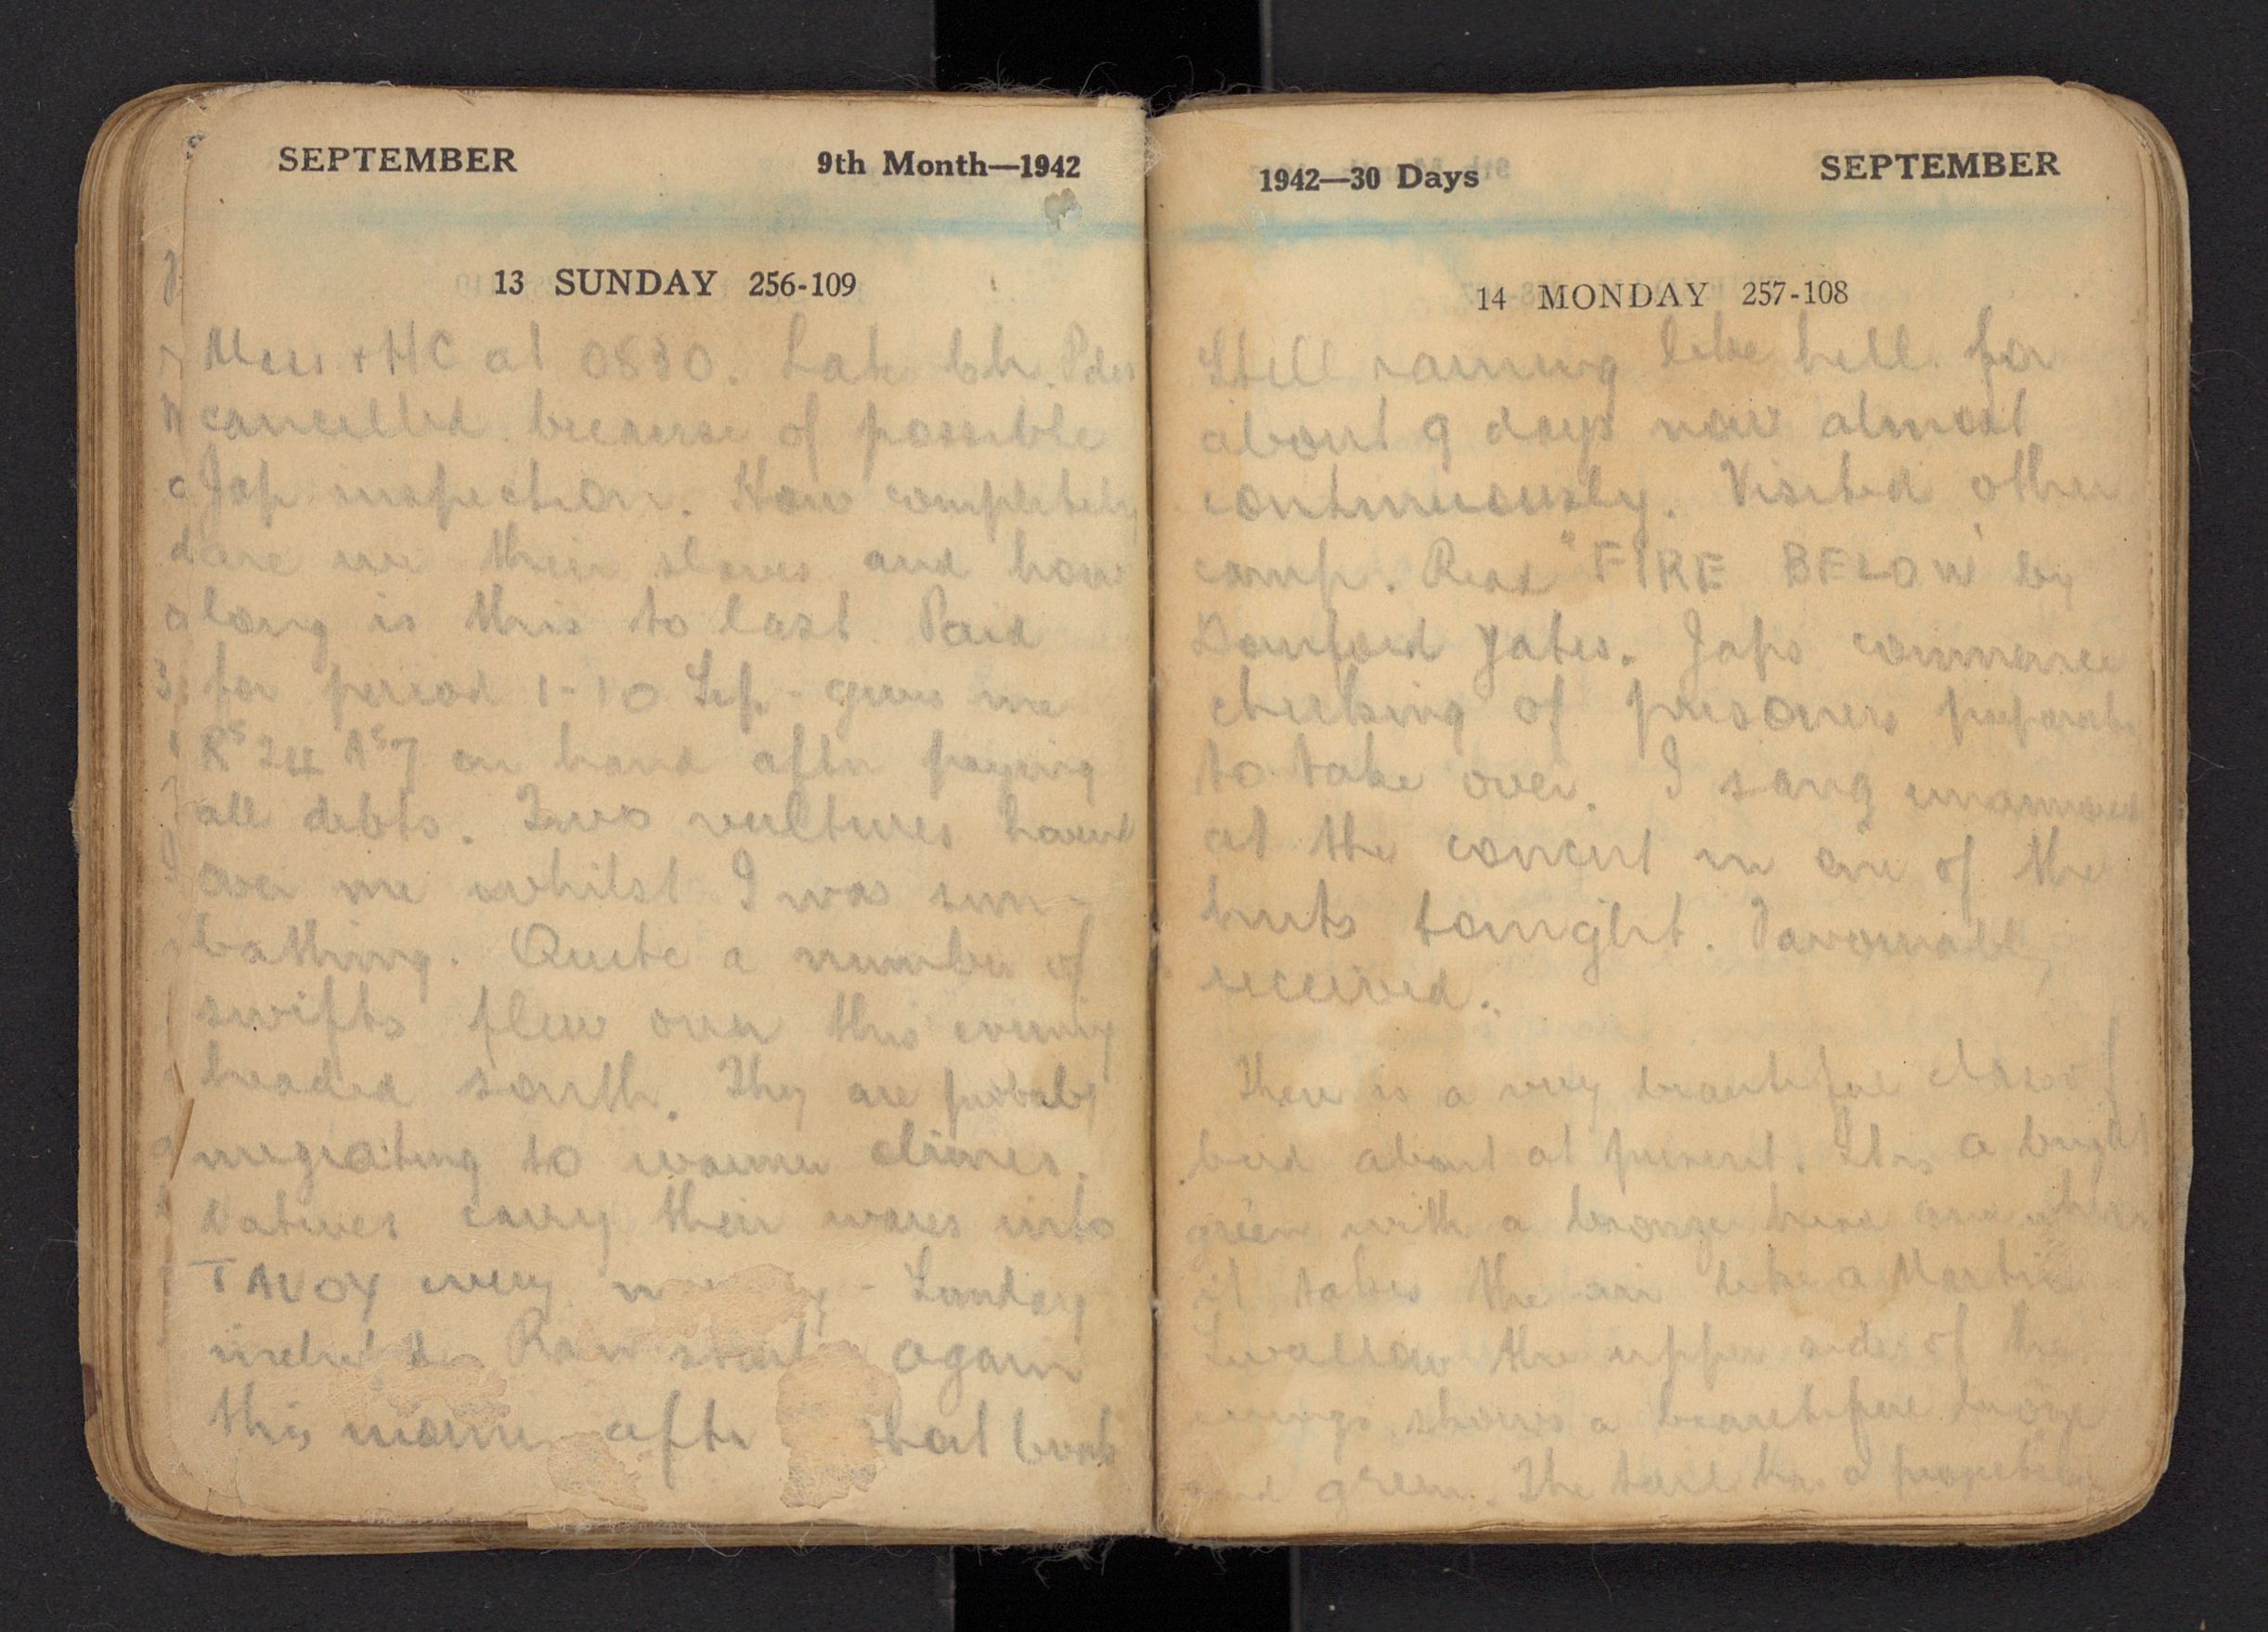 SEPTEMBER 9th Month—1942
13 SUNDAY 256-109
Mass + HC at 0830. Late bh. Pdes
cancelled because of possible
Jap inspection. How completely
are we their slaves and how
long is this to last. Paid
for period 1-10 Sep - gives me
Rs 24 As 7 on hand after paying
all debts. Two vultures
over me whilst I was sun-
bathing. Quite a number of
swifts flew over this evening
headed south. They are probably
migrating to warmer climes.
Natives carry their wares into
TAVOY every - Sunday
Rain again
this after
1942—30 Days SEPTEMBER
14 MONDAY 257-108
Still raining like hell for
about 9 days now almost
continuously. Visited other
camp. Read "FIRE BELOW" by
Dornford Yates. Japs commence
checking of prisoners
to take over. I sang
at the concert in one of the
huts tonight. Favourably
received.
There is a very beautiful class of
bird about at present. It is a bright
green with a bronze head and when
it takes the air like a Martin
Swallow the upper side of the
wings shows a beautiful bronze
and green. The tail has a